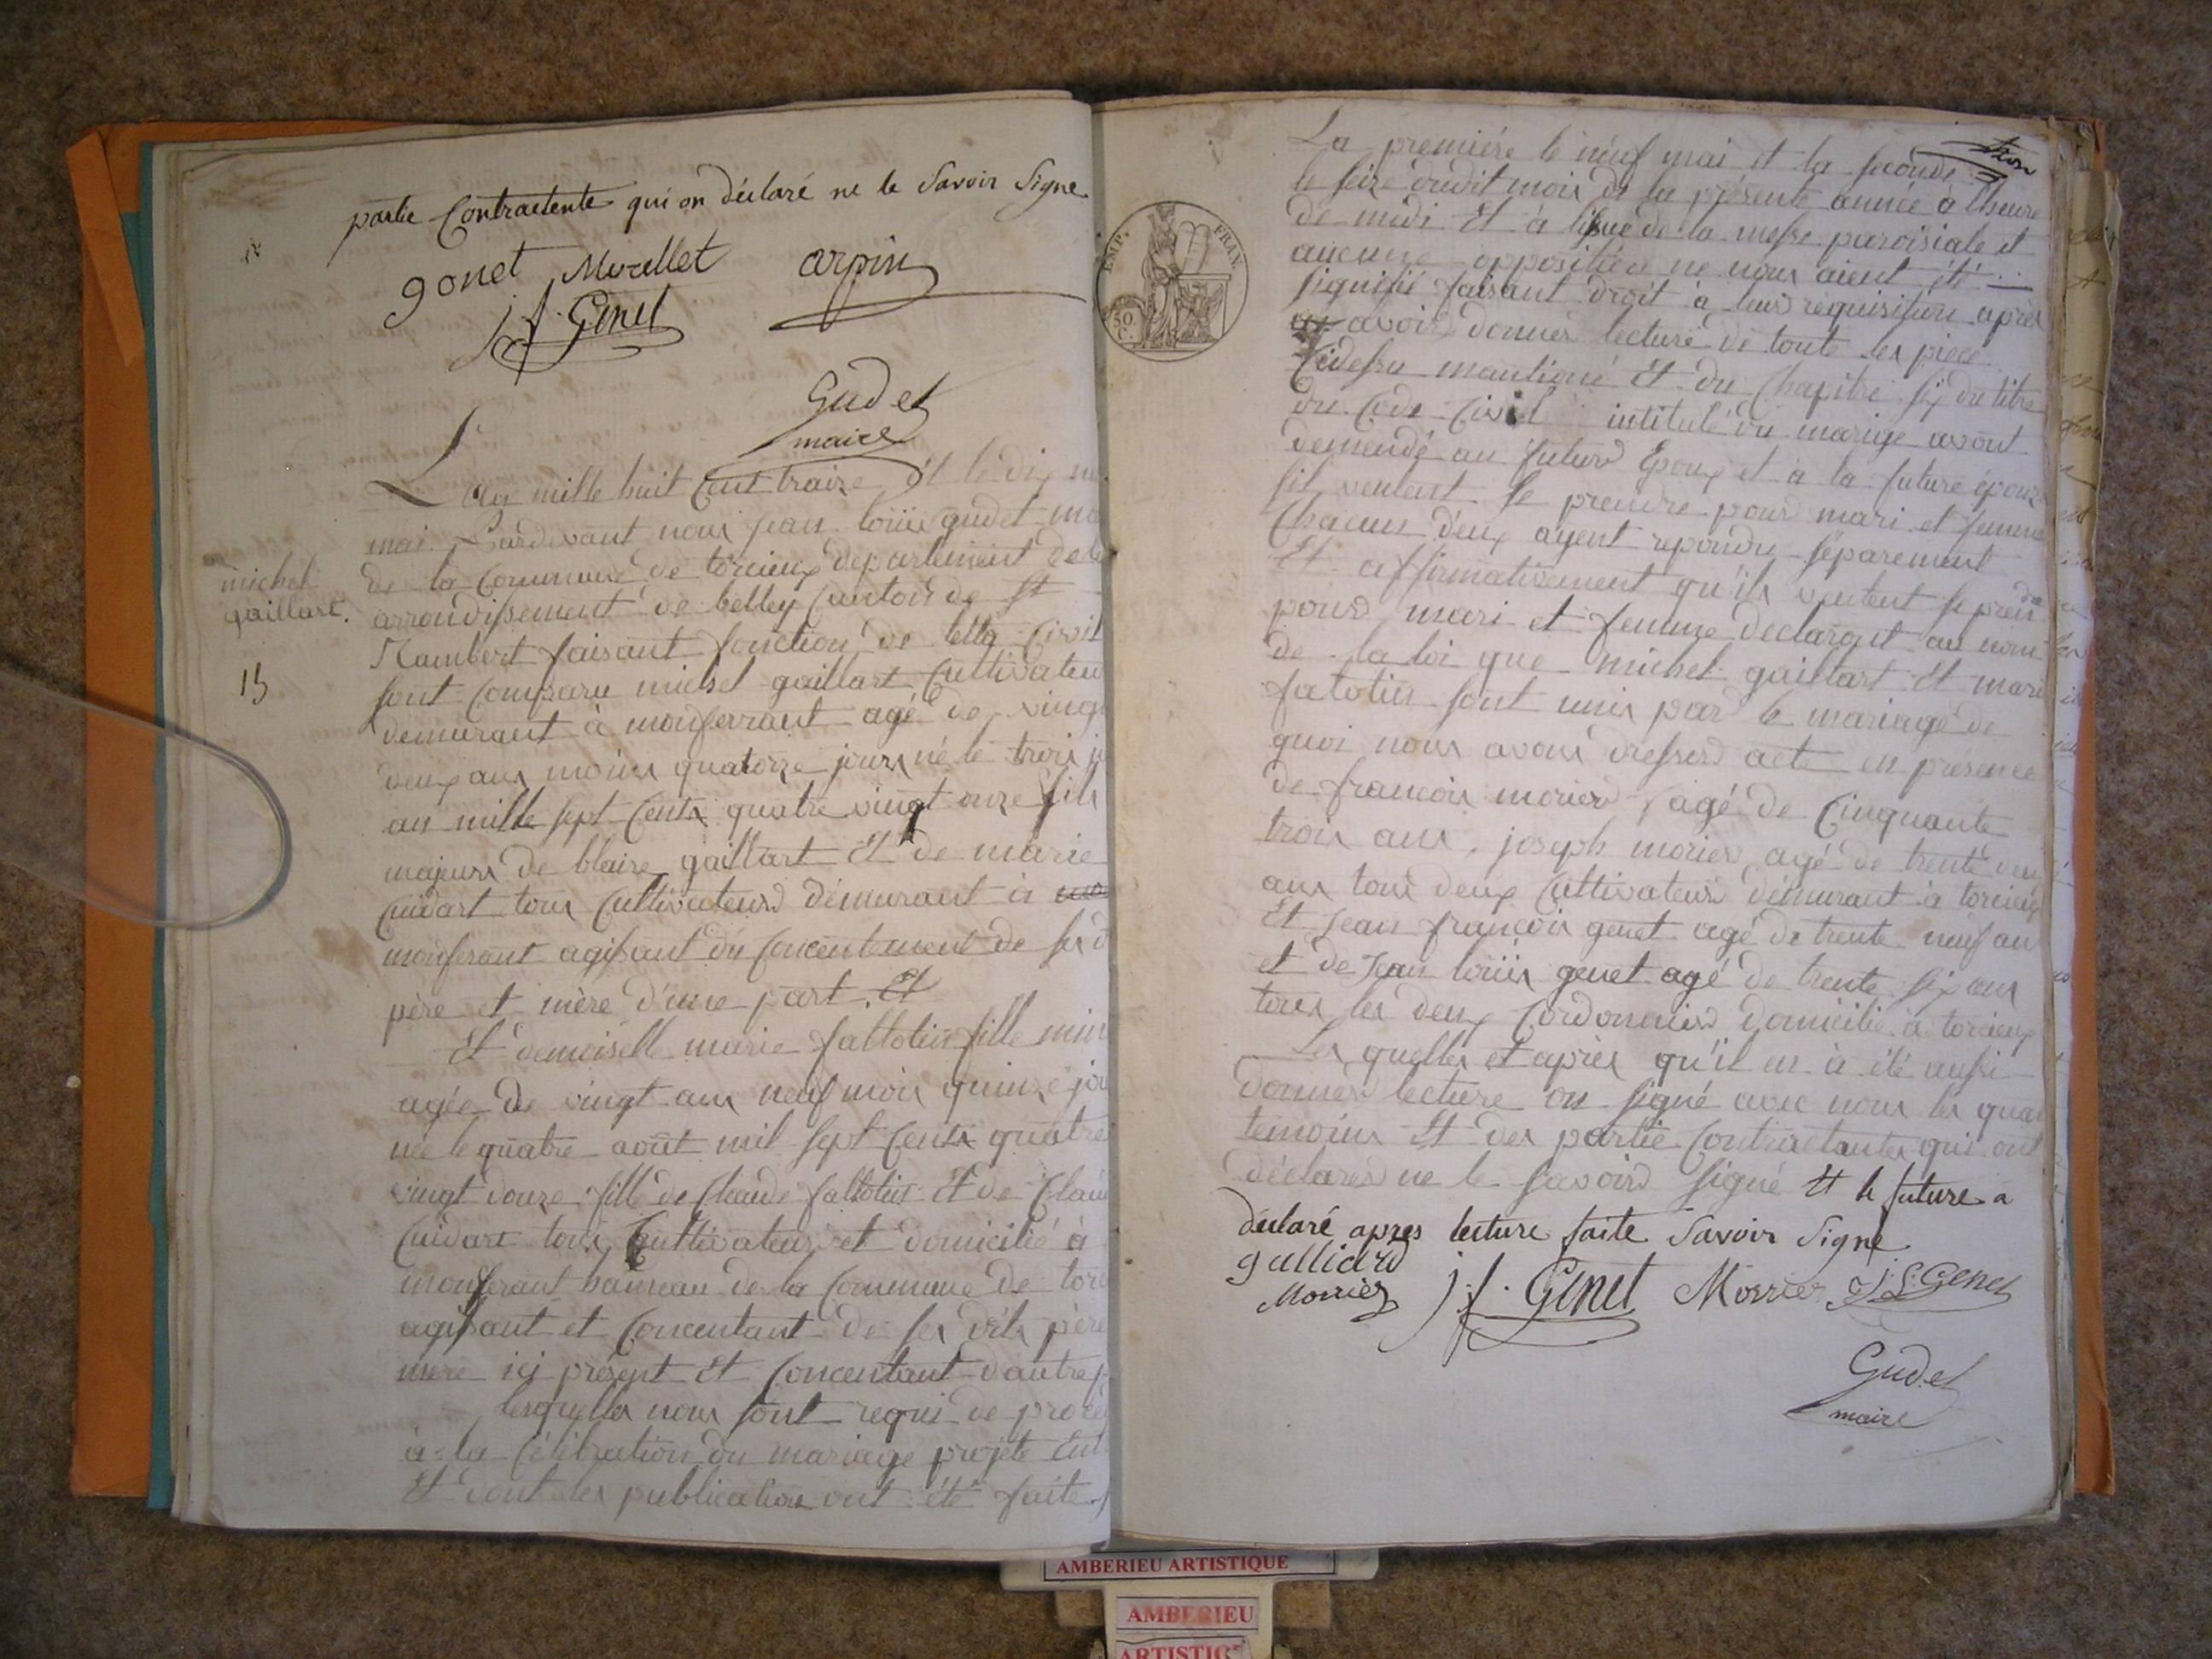 partie Contractente qui on déclaré ne le Savoir Signe
gonet Morellet arpin
j f. Genet
Gudet
maire
L'an mille huit Cent traize Et le dix ne
mai Pardevant nous jean loüis gudet ma
de la Commune de torcieux departement de l
arrondissement de belley Canton de St
Rambert faisant fonction de letta Civil
sont Comparu michel gaillart Cultivateur
demurant à monferrant agé de vingt
deux ans moins quatorze jours né le trois j
an mille sept Cents quatre vingt onze fils
majeurs de blaise gaillart Et de marie
Cuidart tous Cultivateurs demurant à
monferant agissant du Concentement de ses d
père et mère d'une part. Et
Et demoiselle marie fallotin fille min
agée de vingt ans neuf mois quinze jou
née le quatre août mil sept Cents quatre
vingt douze fille de Claude fallotin Et de Clau
Cuidart tous Cultivateurs et domicilié à
monferant hameau de la Commune de torc
agissant et Concentant de ses dits père
mère ici présent Et Concentant d'autre p
lesquelles nous sont requi de procé
à la Célébration du mariage projeté Ent
Et dont les publication ont été faite
michel
gaillart.
13
EMP. FRAN.
50
C.
La première le neuf mai et la seconde
le seize dudit mois de la présente année à l'heure
de midi Et a lissue de la messe paroisiale et
aucunne opposition ne nous aient été
signifié faisant droit à leur requisition après
avoir donner lecture de toute les piece
Cidessu mantioné Et du Chapitre six du titre
du Code Civil intitulé du marige avont
demendé au futur Epoux et à la future épouze
sil veulent se prendre pour mari et femme
Chacun d'eux ayent repondu séparement
Et affirmativement qu'ils veulent se prendre
pour mari et femme declaront au nom
de la loi que michel gaillart Et mari
falotin sont unis par le mariage de
quoi nous avons dresser acte en présence
de francois morier, agé de Cinquante
trois ans, joseph morier agé de trente deux
ans tous deux Cultivateurs démurant à torcieux
Et Jean francois genet agé de trente neuf an
et de Jean loüis genet agé de trente six ans
tous les deux Cordonnier domicilié à torcieux
Les quelles et après qu'il en à été aussi
donner lecture on signé avec nous les quat
temoins Et des partie Contractantes qui ont
déclarer ne le savoir signé Et le future a
déclaré apres lecture faite Savoir Signe
gulliard
Morrier j f. Genet Morrier J. L. Genet
Gudet
maire
AMBERIEU ARTISTIQUE
AMBERIEU
ARTISTIC